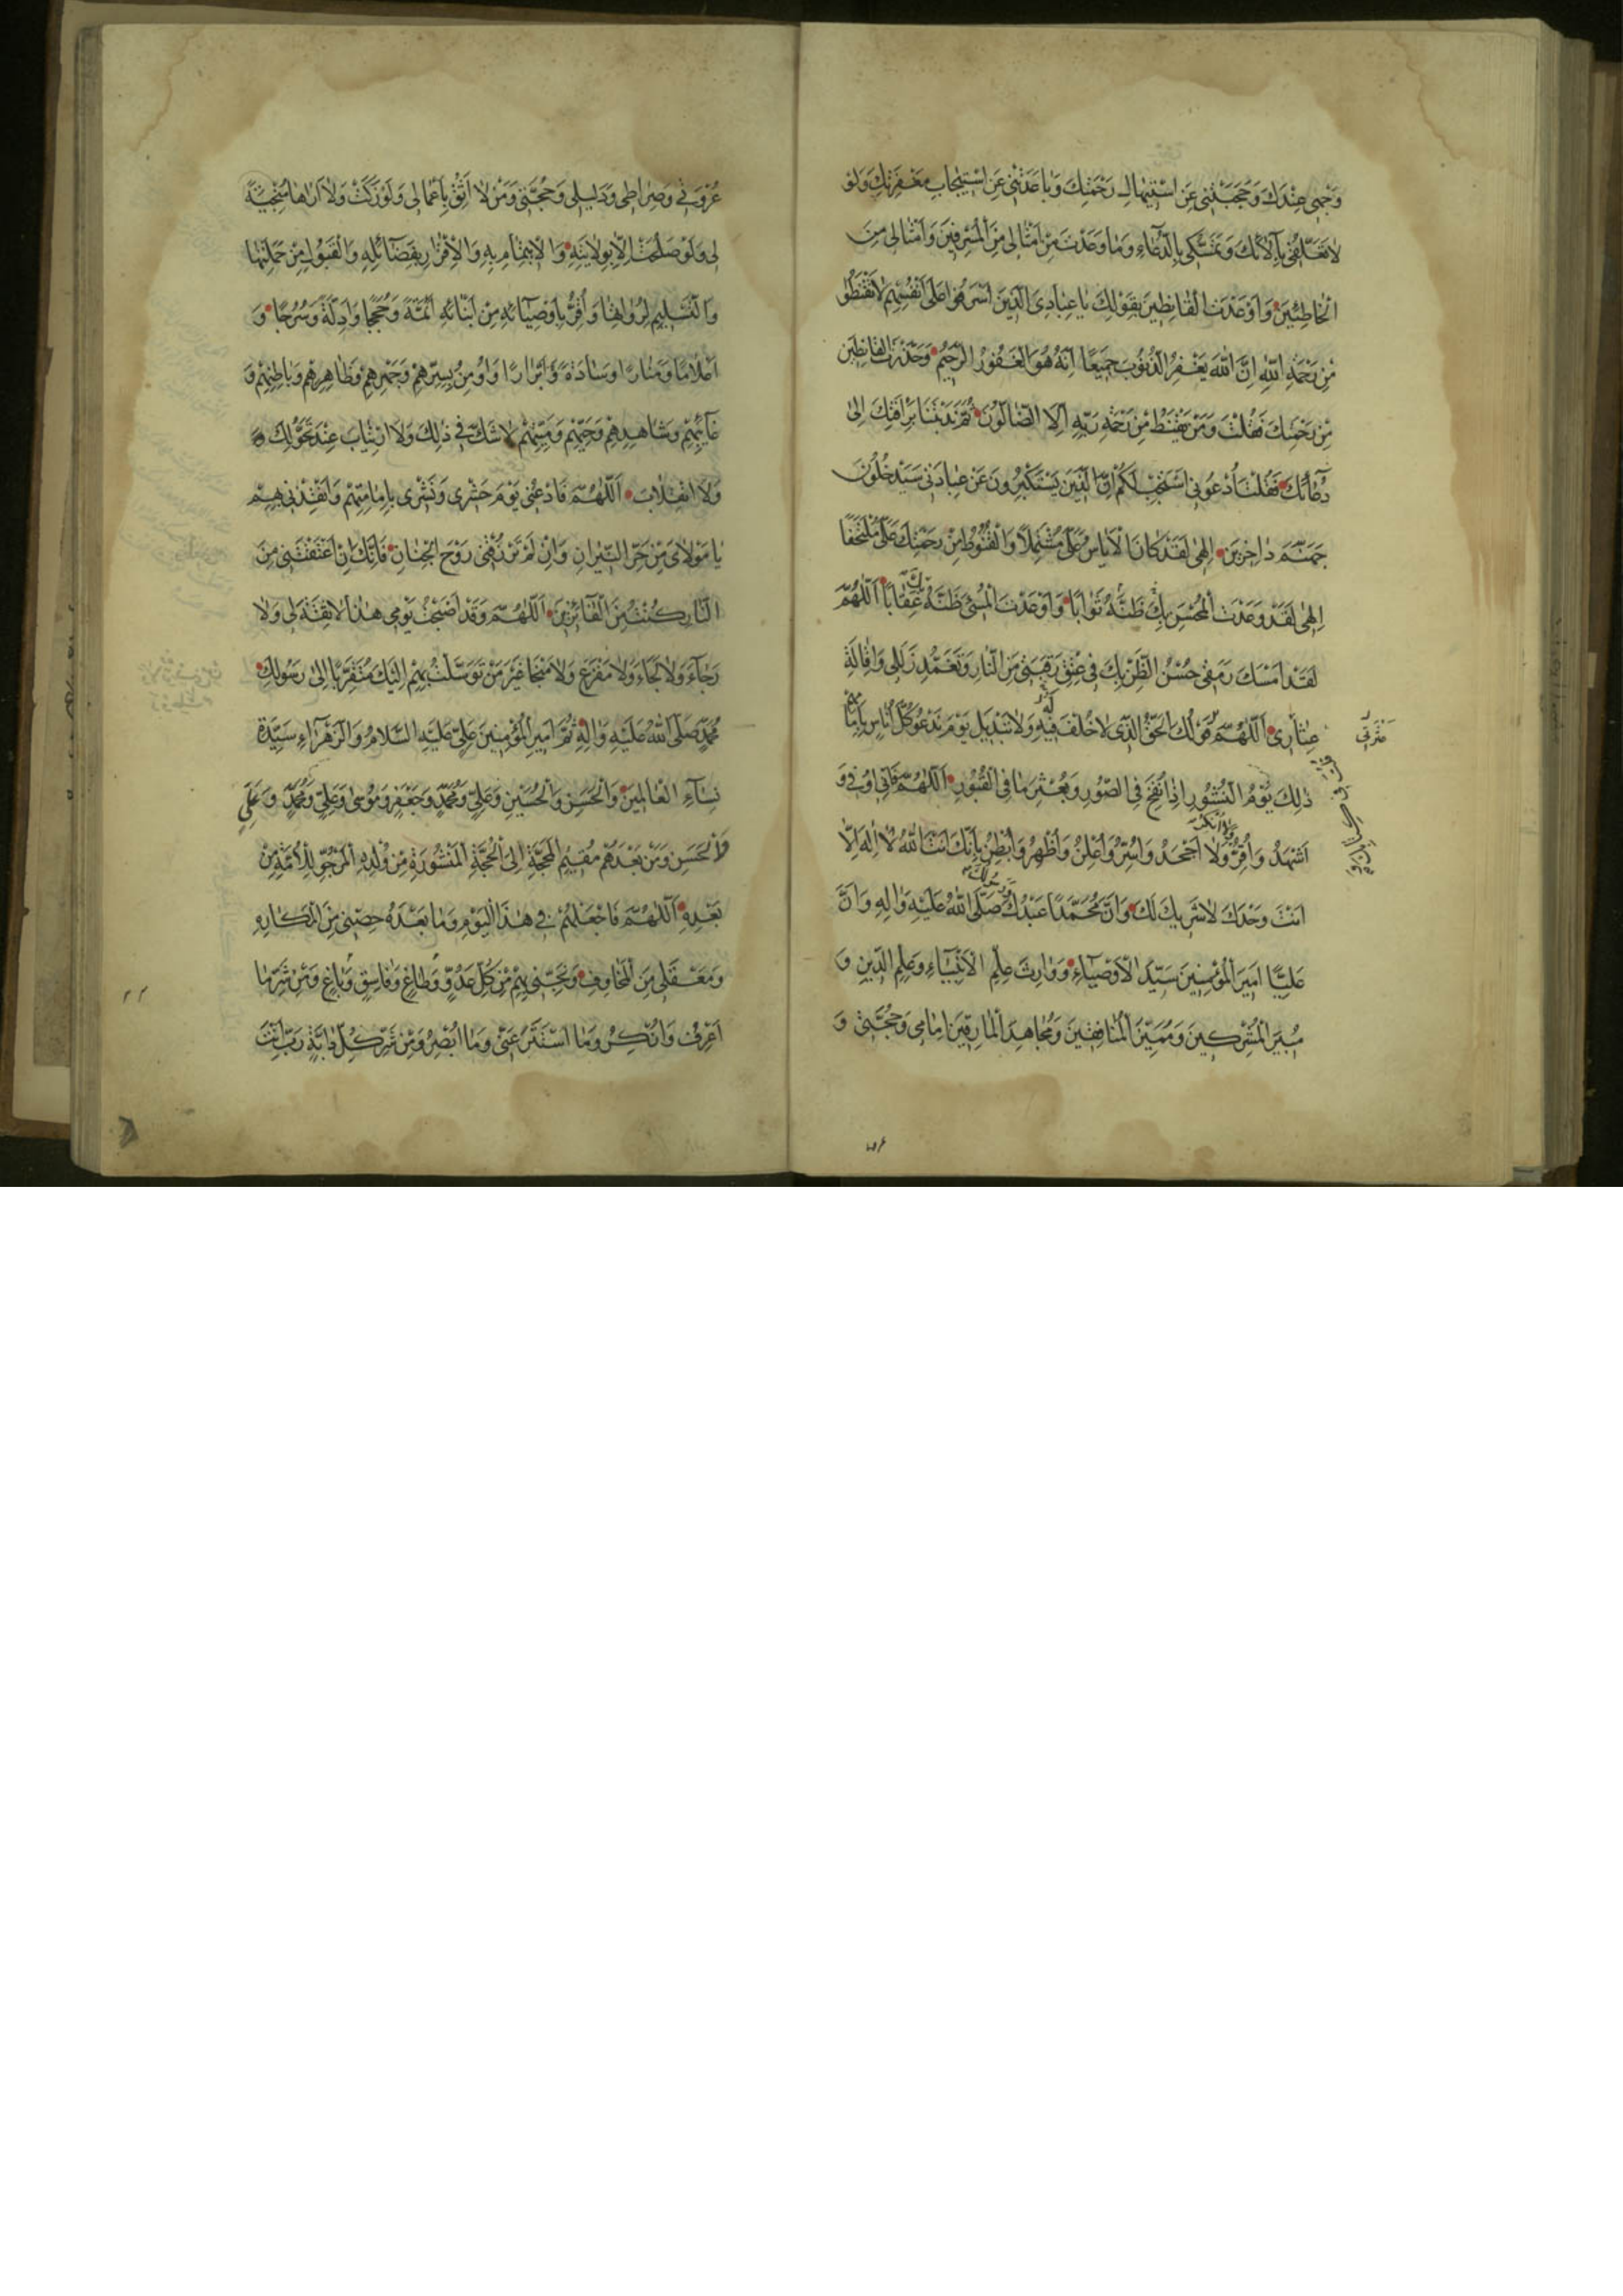 وَجْهِی عِنْدَكَ وَحَجَبَتْنِی عَنِ اسْتِیهَالِ رَحْمَتِكَ وَبَاعَدَتْنِی عَنِ اسْتِیجَابِ مَغْفِرَتِكَ وَلَوْ
لَا تَعَلُّقِی بِآلَائِكَ وَتَمَسُّكِی بِالدُّعَاءِ وَمَا وَعَدْتَ مِنْ اَمْثَالِی مِنَ الْمُسْرِفِینَ وَاَمْثَالِی مِنَ
الْخَاطِئِینَ وَاَوْعَدْتَ الْقَانِطِینَ بِقَوْلِكَ یَا عِبَادِیَ الَّذِینَ اَسْرَفُوا عَلَی اَنْفُسِهِمْ لَا تَقْنَطُوا
مِنْ رَحْمَةِ اللّٰهِ اِنَّ اللّٰهَ یَغْفِرُ الذُّنُوبَ جَمِیعًا اِنَّهُ هُوَ الْغَفُورُ الرَّحِیمُ وَحَذَّرْتَ الْقَانِطِینَ
مِنْ رَحْمَتِكَ فَقُلْتَ وَمَنْ یَقْنَطُ مِنْ رَحْمَةِ رَبِّهِ اِلَّا الضَّالُّونَ ثُمَّ نَدَبْتَنَا بِرَأْفَتِكَ اِلَی
دُعَائِكَ فَقُلْتَ اُدْعُونِی اَسْتَجِبْ لَكُمْ اِنَّ الَّذِینَ یَسْتَكْبِرُونَ عَنْ عِبَادَتِی سَیَدْخُلُونَ
جَهَنَّمَ دَاخِرِینَ اِلٰهِی لَقَدْ كَانَ الْاِیَاسُ عَلَیَّ مُشْتَمِلًا وَالْقُنُوطُ مِنْ رَحْمَتِكَ عَلَیَّ مُلْتَحِفًا
اِلٰهِی لَقَدْ وَعَدْتَ الْمُحْسِنَ بِكَ ظَنَّهُ ثَوَابًا وَاَوْعَدْتَ الْمُسِیءَ بِكَ ظَنَّهُ عِقَابًا اَللّٰهُمَّ
لَقَدْ اَمْسَكَ رَمَقِی حُسْنُ الظَّنِّ بِكَ فِی عِتْقِ رَقَبَتِی مِنَ النَّارِ وَتَغَمُّدِ زَلَلِی وَاِقَالَةِ
عِثَارِی اَللّٰهُمَّ قَوْلُكَ الْحَقُّ الَّذِی لَا خُلْفَ فِیهِ لَهُ وَلَا تَبْدِیلَ یَوْمَ نَدْعُو كُلَّ اُنَاسٍ بِاِمَامِهِمْ
عَثْرَتِی
ذٰلِكَ یَوْمُ النُّشُورِ اِذَا نُفِخَ فِی الصُّورِ وَبُعْثِرَ مَا فِی الْقُبُورِ اَللّٰهُمَّ فَاِنِّی اُوفِی وَ
اَشْهَدُ وَاُقِرُّ وَلَا اُنْكِرُ وَلَا اَجْحَدُ وَاُسِرُّ وَاُعْلِنُ وَاُظْهِرُ وَاُبْطِنُ بِاَنَّكَ اَنْتَ اللّٰهُ لَا اِلٰهَ اِلَّا
اَنْتَ وَحْدَكَ لَا شَرِیكَ لَكَ وَاَنَّ مُحَمَّدًا عَبْدُكَ وَرَسُولُكَ صَلَّی اللّٰهُ عَلَیْهِ وَآلِهِ وَاَنَّ
عَلِیًّا اَمِیرَ الْمُؤْمِنِینَ سَیِّدُ الْاَوْصِیَاءِ وَوَارِثُ عِلْمِ الْاَنْبِیَاءِ وَعَلَمِ الدِّینِ وَ
مُبِیرَ الْمُشْرِكِینَ وَمُمَیِّزَ الْمُنَافِقِینَ وَمُجَاهِدَ الْمَارِقِینَ اِمَامِی وَحُجَّتِی وَ
عُرْوَتِی وَصِرَاطِی وَدَلِیلِی وَحُجَّتِی وَمَنْ لَا اَثِقُ بِاَعْمَالِی وَلَوْ زَكَتْ وَلَا اَرَاهَا مُنْجِیَةً
لِی وَلَوْ صَلُحَتْ اِلَّا بِوِلَایَتِهِ وَالْاِیتِمَامِ بِهِ وَالْاِقْرَارِ بِفَضَائِلِهِ وَالْقَبُولِ مِنْ حَمَلَتِهَا
وَالتَّسْلِیمِ لِرُوَاتِهَا وَاُقِرُّ بِاَوْصِیَائِهِ مِنْ اَبْنَائِهِ اَئِمَّةً وَحُجَجًا وَاَدِلَّةً وَسُرُجًا وَ
اَعْلَامًا وَمَنَارًا وَسَادَةً وَاَبْرَارًا وَاُومِنُ بِسِرِّهِمْ وَجَهْرِهِمْ وَظَاهِرِهِمْ وَبَاطِنِهِمْ وَ
غَائِبِهِمْ وَشَاهِدِهِمْ وَحَیِّهِمْ وَمَیِّتِهِمْ لَا شَكَّ فِی ذٰلِكَ وَلَا ارْتِیَابَ عِنْدَ تَحَوُّلِكَ
وَلَا انْقِلَابَ اَللّٰهُمَّ فَادْعُنِی یَوْمَ حَشْرِی وَنَشْرِی بِاِمَامَتِهِمْ وَاَنْقِذْنِی بِهِمْ
یَا مَوْلَایَ مِنْ حَرِّ النِّیرَانِ وَاِنْ لَمْ تَرْزُقْنِی رَوْحَ الْجِنَانِ فَاِنَّكَ اِنْ اَعْتَقْتَنِی مِنَ
النَّارِ كُنْتُ مِنَ الْفَائِزِینَ اَللّٰهُمَّ وَقَدْ اَصْبَحْتُ یَوْمِی هٰذَا لَا ثِقَةَ لِی وَلَا
رَجَاءَ وَلَا لَجَاءَ وَلَا مَفْزَعَ وَلَا مَنْجَا غَیْرَ مَنْ تَوَسَّلْتُ بِهِمْ اِلَیْكَ مُتَقَرِّبًا اِلَی رَسُولِكَ
مُحَمَّدٍ صَلَّی اللّٰهُ عَلَیْهِ وَآلِهِ ثُمَّ اَمِیرِ الْمُؤْمِنِینَ عَلِیٍّ عَلَیْهِ السَّلَامُ وَالزَّهْرَاءِ سَیِّدَةِ
نِسَاءِ الْعَالَمِینَ وَالْحَسَنِ وَالْحُسَیْنِ وَعَلِیٍّ وَمُحَمَّدٍ وَجَعْفَرٍ وَمُوسَی وَعَلِیٍّ وَمُحَمَّدٍ وَعَلِیٍّ
وَالْحَسَنِ وَمَنْ بَعْدَهُمْ مُقِیمُ الْمَحَجَّةِ اِلَی الْحُجَّةِ الْمَنْشُورَةِ مِنْ وُلْدِهِ الْمَرْجُوِّ لِلْاُمَّةِ مِنْ
بَعْدِهِ اَللّٰهُمَّ فَاجْعَلْهُمْ فِی هٰذَا الْیَوْمِ وَمَا بَعْدَهُ حِصْنِی مِنَ الْمَكَارِهِ
وَمَعْقِلِی مِنَ الْمَخَاوِفِ وَنَجِّنِی بِهِمْ مِنْ كُلِّ عَدُوٍّ وَطَاغٍ وَفَاسِقٍ وَبَاغٍ وَمِنْ شَرِّ مَا
اَعْرِفُ وَاُنْكِرُ وَمَا اسْتَتَرَ عَنِّی وَمَا اُبْصِرُ وَمِنْ شَرِّ كُلِّ دَابَّةٍ رَبِّ اَنْتَ